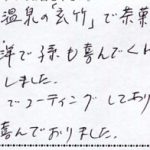 温泉の玄竹」で茶菓
洋で孫も喜んでくれ
しました。
でコーティングしており
喜んでおりました。